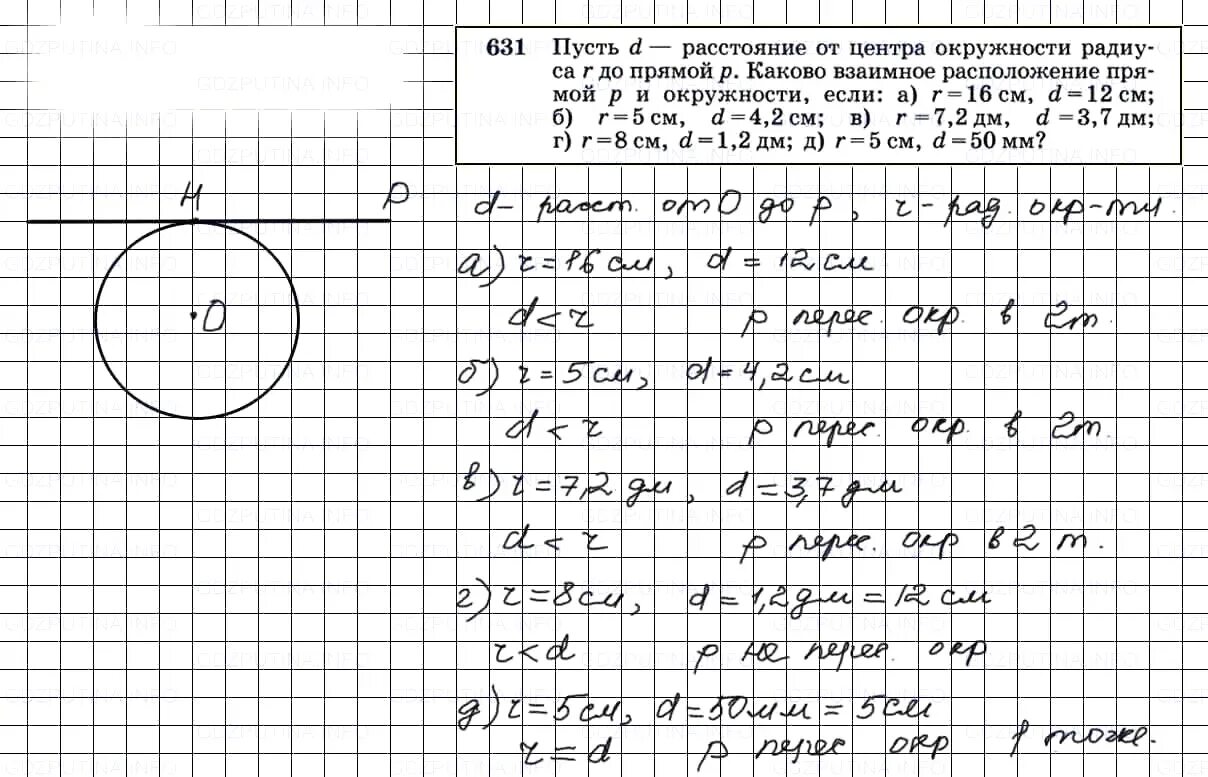 631 Пусть d — расстояние от центра окружности радиу-
са r до прямой p. Каково взаимное расположение пря-
мой p и окружности, если: а) r = 16 см, d = 12 см;
б) r = 5 см, d = 4,2 см; в) r = 7,2 дм, d = 3,7 дм;
г) r = 8 см, d = 1,2 дм; д) r = 5 см, d = 50 мм?
H p
O
d – расст. от O до p, r – рад. окр-ти.
а) r = 16 см, d = 12 см
d < r p перес. окр. в 2 т.
б) r = 5 см, d = 4,2 см
d < r p перес. окр. в 2 т.
в) r = 7,2 дм, d = 3,7 дм
d < r p перес. окр в 2 т.
г) r = 8 см, d = 1,2 дм = 12 см
r < d p не перес. окр
д) r = 5 см, d = 50 мм = 5 см
r = d p перес окр 1 точке.
GDZPUTINA.INFO